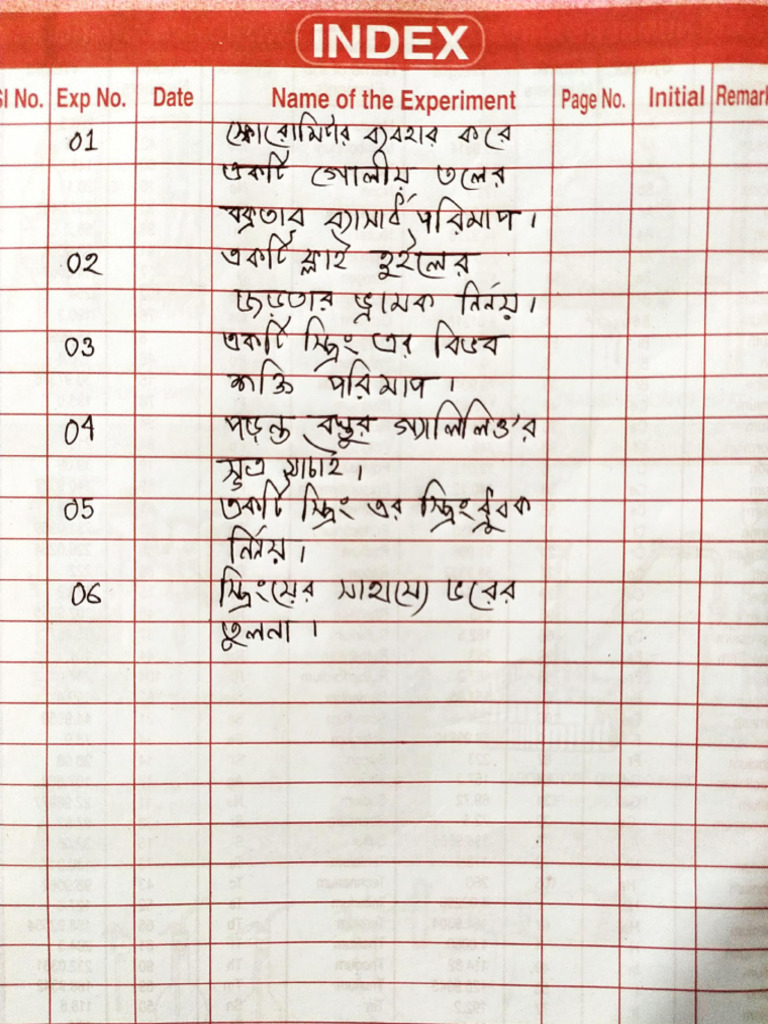 INDEX
Sl No. Exp No. Date Name of the Experiment Page No. Initial Remark
01 স্ফেরোমিটার ব্যবহার করে
একটি গোলীয় তলের
বক্রতার ব্যাসার্ধ পরিমাপ।
02 একটি ফ্লাই হুইলের
জড়তার ভ্রামক নির্নয়।
03 একটি স্প্রিং এর বিভব
শক্তি পরিমাপ।
04 পড়ন্ত বস্তুর গ্যালিলিও'র
সূত্র যাচাই।
05 একটি স্প্রিং এর স্প্রিং ধ্রুবক
নির্নয়।
06 স্প্রিংয়ের সাহায্যে ভরের
তুলনা।